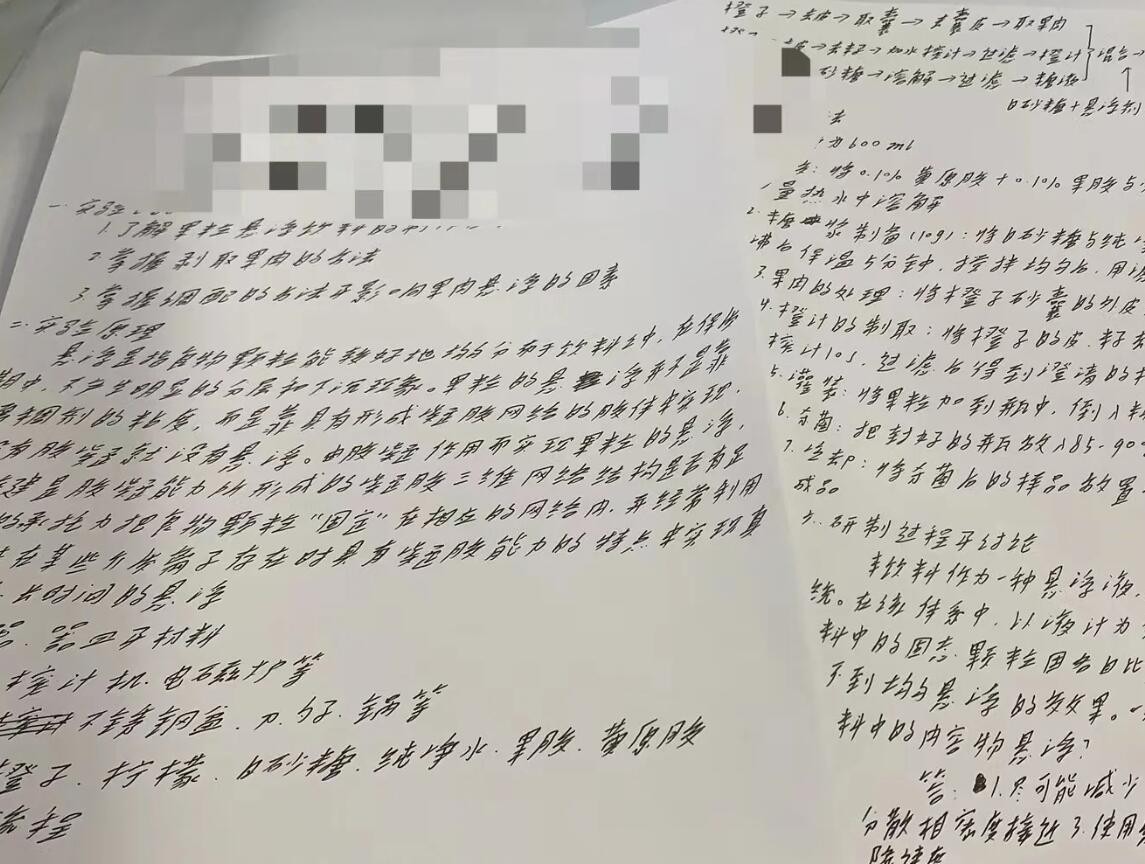 1.了解果粒悬浮饮料的制
2.掌握剥取果肉的方法
3.掌握调配的方法及影响果肉悬浮的因素
二.实验原理
悬浮是指食物颗粒能较好地均匀分布于饮料中,在保质
期中,不发生明显的分层和下沉现象。果粒的悬浮并不是靠
的粘度,而是靠具有形成凝胶网络的胶体来实现,
没有胶凝就没有悬浮。由胶凝作用而实现果粒的悬浮,
关键是胶凝能力所形成的凝胶三维网络结构是否有足
的承托力把食物颗粒“固定”在相应的网络内,并经常利用
在某些介质离子存在时具有凝胶能力的特点来实现真
长时间的悬浮
器皿及材料
榨汁机.电磁炉等
不锈钢盆.刀.勺子.锅等
橙子.柠檬.白砂糖.纯净水.果胶.黄原胶
流程
橙子→去皮→取囊→去囊皮→取果肉
去籽→加水榨汁→过滤→橙汁 混合→
砂糖→溶解→过滤→糖液
白砂糖+悬浮剂
法
为600ml
将0.1%黄原胶+0.1%果胶与
量热水中溶解
2.糖浆制备(10g):将白砂糖与纯
沸后保温5分钟,搅拌均匀后,用
3.果肉的处理:将橙子砂囊的外皮
4.橙汁的制取:将橙子的皮.籽
榨汁10s,过滤后得到澄清的
5.灌装:将果粒加到瓶中,倒入
6.杀菌:把封好的瓶放入85-90
7.冷却:将杀菌后的样品放置
成品
五.研制过程及讨论
饮料作为一种悬浮液,
统。在该体系中,以液汁为
料中的固态颗粒因各自比
不到均匀悬浮的效果。
料中的内容物悬浮?
答:1.尽可能减少
分散相密度接近3.使用
降速度